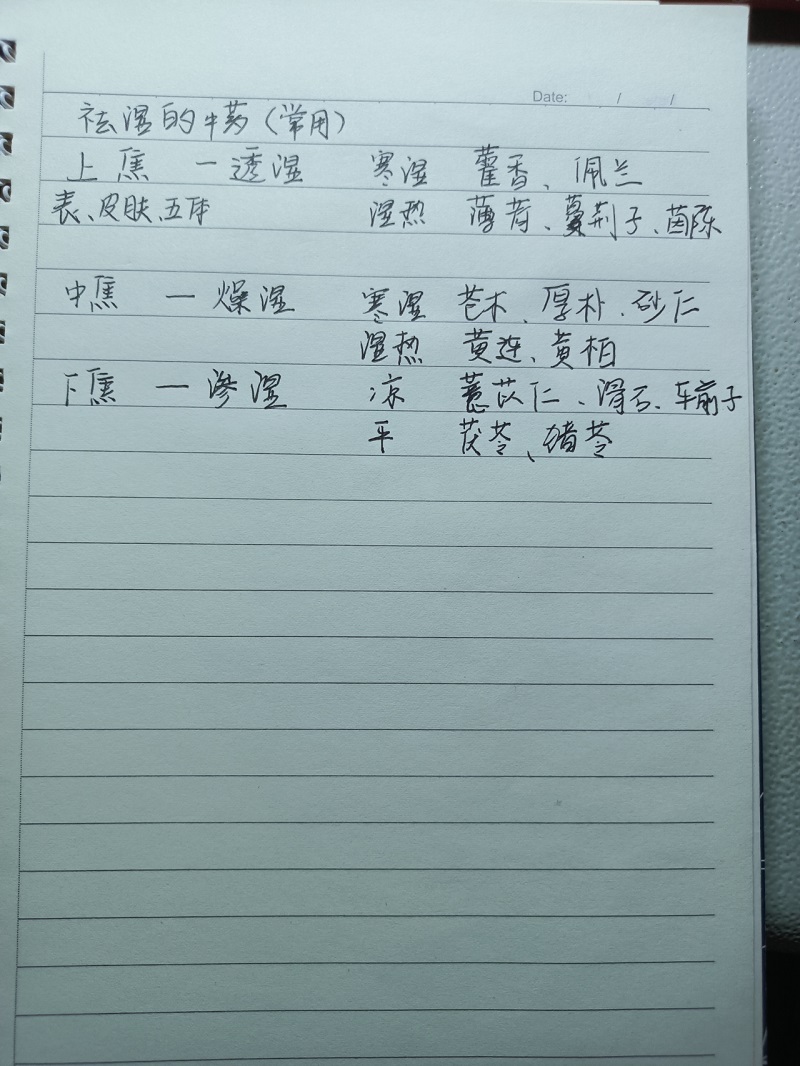 Date: / /
祛湿的中药（常用）
上焦 — 透湿 寒湿 藿香、佩兰
表、皮肤、五体 湿热 薄荷、蔓荆子、茵陈
中焦 — 燥湿 寒湿 苍术、厚朴、砂仁
湿热 黄连、黄柏
下焦 — 渗湿 凉 薏苡仁、滑石、车前子
平 茯苓、猪苓